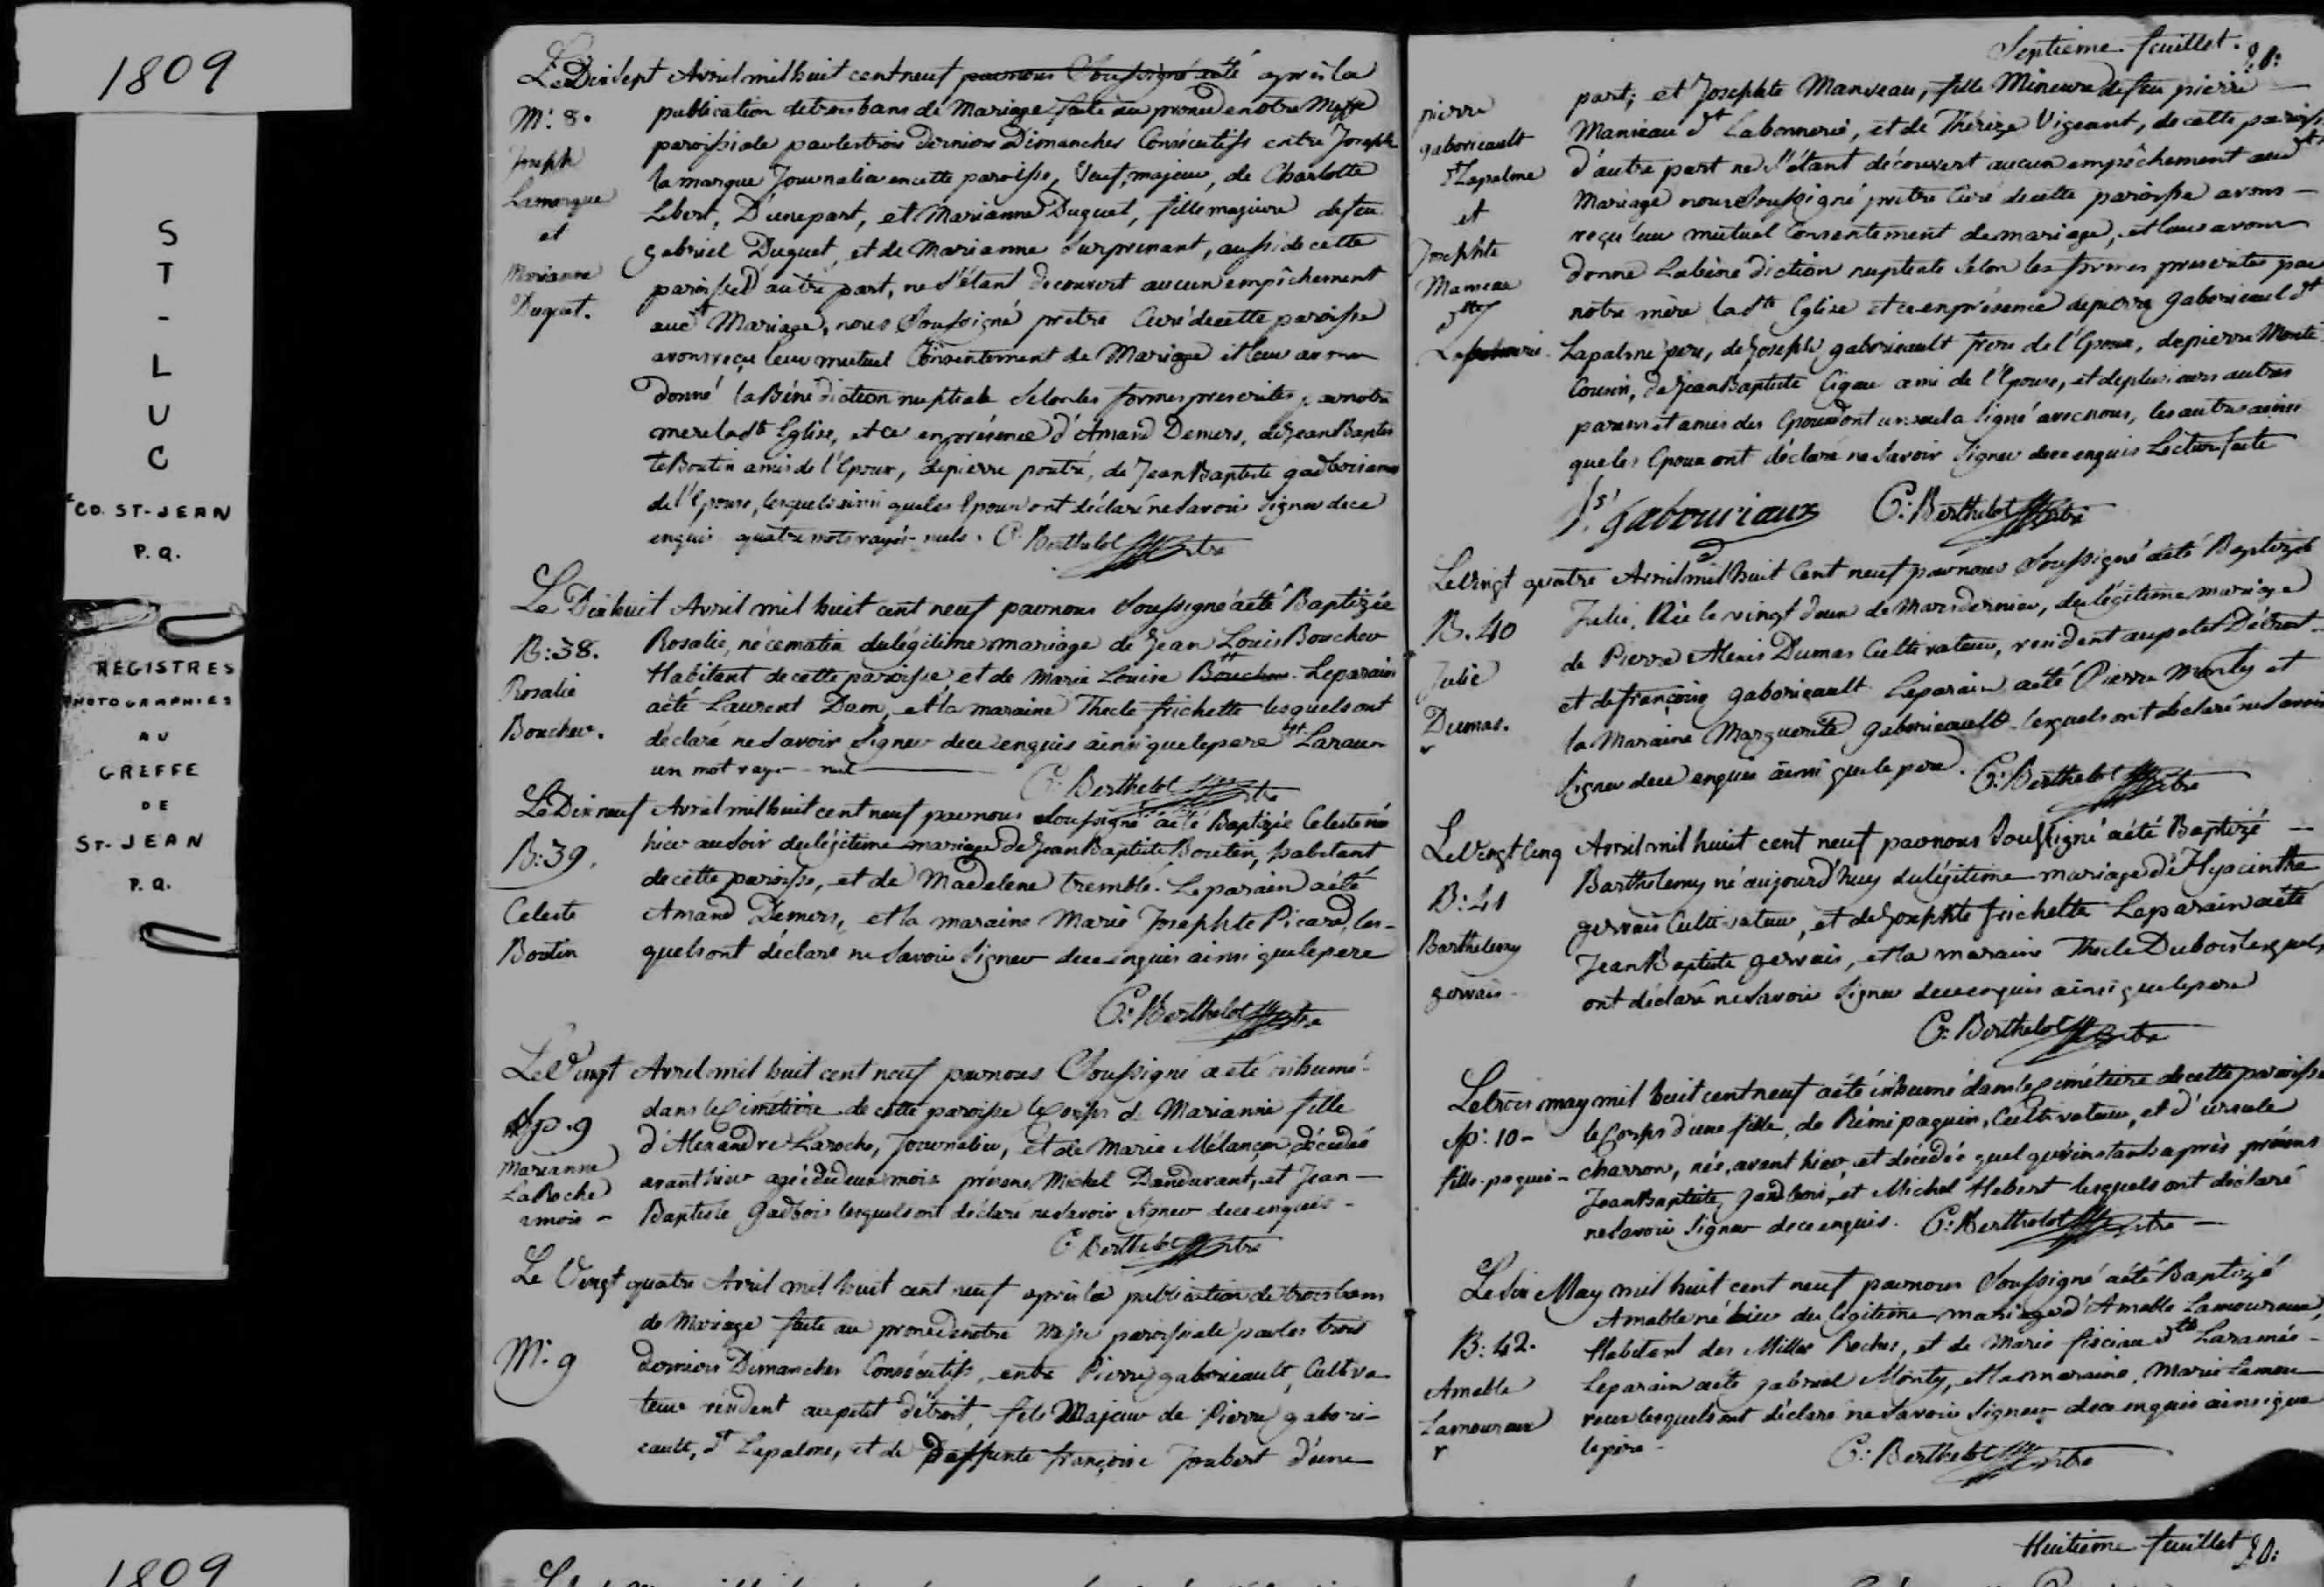 1809
S
T
-
L
U
C
CO. ST-JEAN
P.Q.
REGISTRES
PHOTOGRAPHIES
AU
GREFFE
DE
ST-JEAN
P.Q.
1809
Le Dix sept Avril mil huit cent neuf par nous Soussigné a été après la
M: 8.
Joseph
Lamarque
et
Marianne
Duquet.
publication de trois bans de Mariage faite au prone de notre Messe
paroissiale par les trois derniers Dimanches Consécutifs entre Joseph
la marque Journalier en cette paroisse, Veuf, majeur, de Charlotte
Lebert, D'une part, et Marianne Duquet, fille majeure defeu
gabriel Duquet, et de Marianne Surprenant, aussi de cette
paroisse d'autre part, ne s'étant decouvert aucun empêchement
aud.t Mariage, nous Soussigné prêtre Curé de cette paroisse
avons reçu leur mutuel Consentement de Mariage et leur avons
donné la Béné diction nuptiale Selon les formes prescrites par notre
mere la S.te Eglise, et ce en présence d'Amand Demers, de Jean Baptis
te Boutin amis de l'Epoux, de pierre poutré, de Jean Baptiste gadbois amis
de l'Epouse, lesquels ainsi que les Epoux ont déclaré ne Savoir Signer de ce
enquis quatre mots rayés nuls. C: Berthelot Ptre
Le Dix huit Avril mil huit cent neuf par nous Soussigné a été Baptizée
B: 38.
Rosalie
Boucher.
Rosalie, née ce matin du légitime mariage de Jean Louis Boucher
Habitant de cette paroisse et de Marie Louise Boucher. Le parain
a été Laurent Dam, et la maraine Thecle frichette lesquels ont
déclaré ne Savoir Signer de ce enquis ainsi que le pere
un mot rayé nul C: Berthelot Ptre
Le Dix neuf Avril mil huit cent neuf par nous Soussigné a été Baptizée Celeste née
B: 39.
Celeste
Boutin
hier au Soir du légitime mariage de Jean Baptiste Boutin, habitant
de cette paroisse, et de Madelene tremble. Le parain a été
Amand Demers, et la maraine Marie Josephte Picard, les-
quels ont déclaré ne Savoir Signer de ce enquis ainsi que le pere
C: Berthelot Ptre
Le Vingt Avril mil huit cent neuf par nous Soussigné a été inhumé
Sp. 9
Marianne
LaRoche
2 mois -
dans le Cimétière de cette paroisse le Corps de Marianne fille
d'Alexandre Laroche, Journalier, et de Marie Mélançon, décédée
avant hier agée de deux mois présens Michel Dandurant, et Jean-
Baptiste Gadbois lesquels ont déclaré ne Savoir Signer de ce enquis -
C: Berthelot Ptre
Le Vingt quatre Avril mil huit cent neuf après la publication de trois bans
M: 9
de Mariage faite au prone de notre Messe paroissiale par les trois
derniers Dimanches Consécutifs, entre Pierre gaboricault, Cultiva
teur résident au petit détroit, fils Majeur de Pierre gabori-
cault, d.t Lapalme, et de Deffunte françoise Joubert d'une
Septieme feuillet.
pierre
gaboricault
d.t Lapalme
et
Josephte
Manseau
part; et Josephte Manseau, fille Mineure defeu pierre
Manseau d.t Labonnerie, et de Thérèze Vigeant, de cette paroisse
d'autre part ne S'étant découvert aucun empêchement aud.t
Mariage nous Soussigné prêtre Curé de cette paroisse avons -
reçu leur mutuel Consentement de mariage, et leur avons
donné la béné diction nuptiale Selon les formes prescrites par
notre mère la S.te Eglise et ce en présence de pierre gaboricault d.t
Lapalme pere, de Joseph gaboricault frere de l'Epoux, de pierre Monté
Cousin, de Jean Baptiste Cigau ami de l'Epouse, et de plusieurs autres
parens et amis des Epoux dont un seul a Signé avec nous, les autres ainsi
que les Epoux ont déclaré ne Savoir Signer de ce enquis Lecture faite
J.s gabouriaux C: Berthelot Ptre
Le vingt quatre Avril mil huit Cent neuf par nous Soussigné a été Baptizée
B. 40
Julie
Dumas.
Julie, Née le vingt deux de Mars dernier, du légitime mariage
de Pierre Alexis Dumas Cultivateur, resident au petit Détroit -
et de françoise gaboricault. Le parain a été Pierre Monty et
la Maraine Marguerite gaboricault lesquels ont déclaré ne Savoir
Signer de ce enquis ainsi que le pere. C: Berthelot Ptre
Le Vingt Cinq Avril mil huit cent neuf par nous Soussigné a été Baptizé -
B: 41
Barthelemy
gervais -
Barthelemy né aujourd'huy du légitime mariage de Hyacinthe
gervais Cultivateur, et de Josephte frichette Le parain a été
Jean Baptiste gervais, et la maraine Thecle Dubois lesquels
ont déclaré ne Savoir Signer de ce enquis ainsi que le pere
C: Berthelot Ptre
Le trois may mil huit cent neuf a été inhumé dans le cimétiere de cette paroisse
Sp: 10 -
fille paquin -
le Corps d'une fille, de Rémi paquin, Cultivateur, et d'ursule
charron, née, avant hier, et décédée quelqu'instants après présens
Jean Baptiste gadbois, et Michel Hebert lesquels ont déclaré
ne Savoir Signer de ce enquis. C: Berthelot Ptre -
Le Six May mil huit cent neuf par nous Soussigné a été Baptizé
B: 42.
Amable
Lamoureux
Amable né hier du légitime mariage d'Amable Lamoureux,
Habitant des Milles Roches, et de Marie d.te Laramée -
Le parain a été gabriel Monty, et la maraine, Marie Lamou
reux lesquels ont déclaré ne Savoir Signer de ce enquis ainsi que
le père - C: Berthelot Ptre
Huitième feuillet